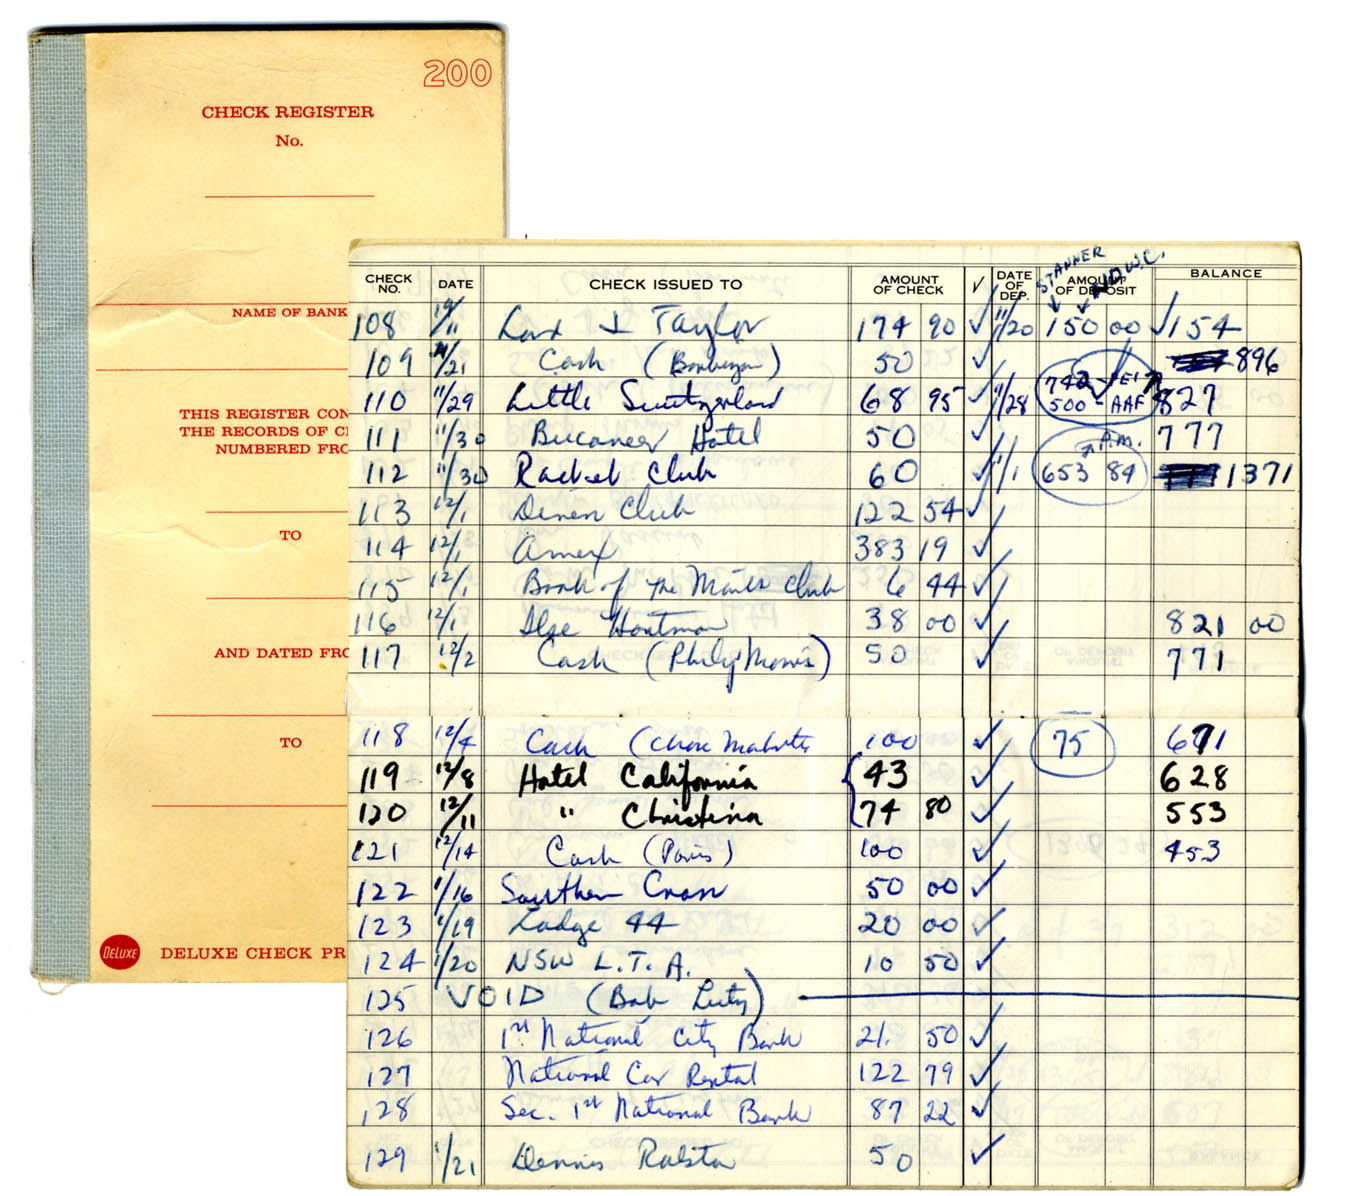 200
CHECK REGISTER
No.
NAME OF BANK
THIS REGISTER CON
THE RECORDS OF C
NUMBERED FRO
TO
AND DATED FRO
TO
DELUXE DELUXE CHECK PR
STANNER
CHECK NO. DATE CHECK ISSUED TO AMOUNT OF CHECK √ DATE OF DEP. AMOUNT OF DEPOSIT BALANCE
108 Lord & Taylor 174 90 ✓ 11/20 150 00 ✓ 154
109 11/21 Cash 50 ✓ 896
110 11/29 Little Switzerland 68 95 ✓ 11/28 742 500 - AAF 827
111 11/30 Buccaneer Hotel 50 ✓ 777
112 11/30 Racket Club 60 ✓ 1 653 84 A.M. 1371
113 12/1 Diners Club 122 54 ✓
114 12/1 Amex 383 19 ✓
115 12/1 Book of the Month Club 6 44 ✓
116 12/1 Ilse 38 00 ✓ 821 00
117 12/2 Cash (Philip Morris) 50 ✓ 771
118 12/4 Cash (Chase 100 ✓ 75 671
119 12/8 Hotel California 43 ✓ 628
120 12/11 " Christina 74 80 ✓ 553
121 12/14 Cash (Paris) 100 ✓ 453
122 1/16 Southern Cross 50 00 ✓
123 1/19 Lodge 44 20 00 ✓
124 1/20 NSW L.T.A. 10 50 ✓
125 VOID (Bob Lutz)
126 1st National City Bank 21. 50 ✓
127 National Car Rental 122 79 ✓
128 Sec. 1st National Bank 87 22 ✓
129 1/21 Dennis Ralston 50 ✓